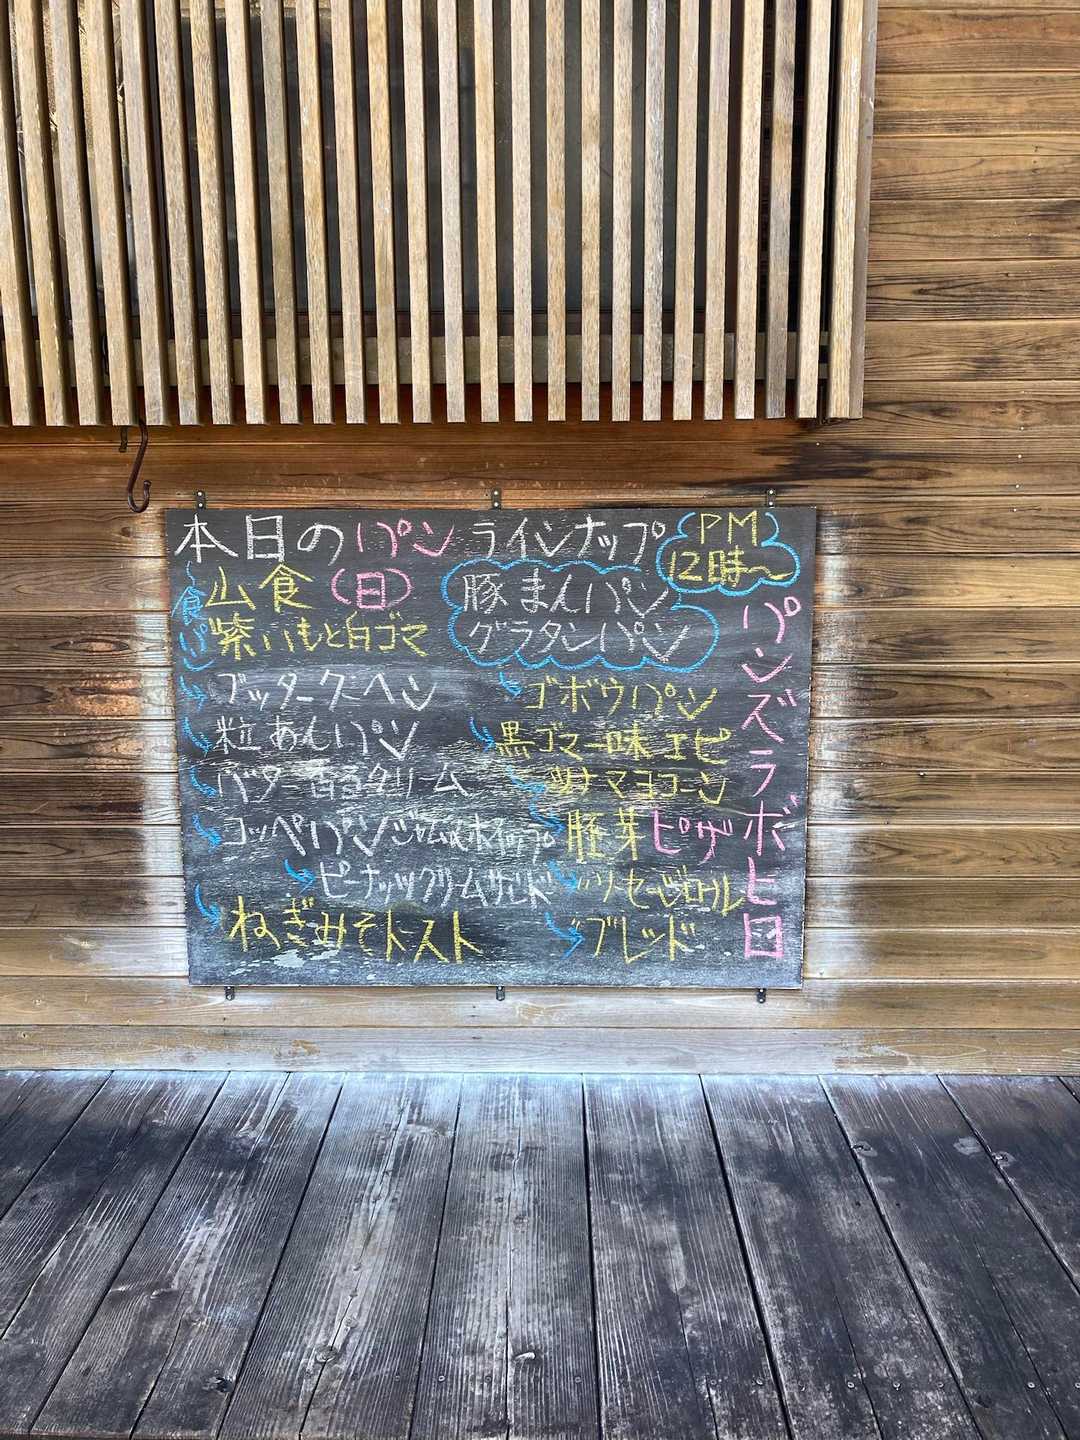 本日のパンラインナップ
PM
12時〜
食パン
山食(日)
紫いもと白ゴマ
豚まんパン
グラタンパン
ブッタークーヘン
粒あんパン
バター香るクリーム
コッペパンジャム&ホイップ
ピーナッツクリームサンド
ねぎみそトースト
ゴボウパン
黒ゴマ一味エピ
ツナマヨコーン
胚芽ピザ
ソーセージロール
ブレッド
パンズラボヒロ